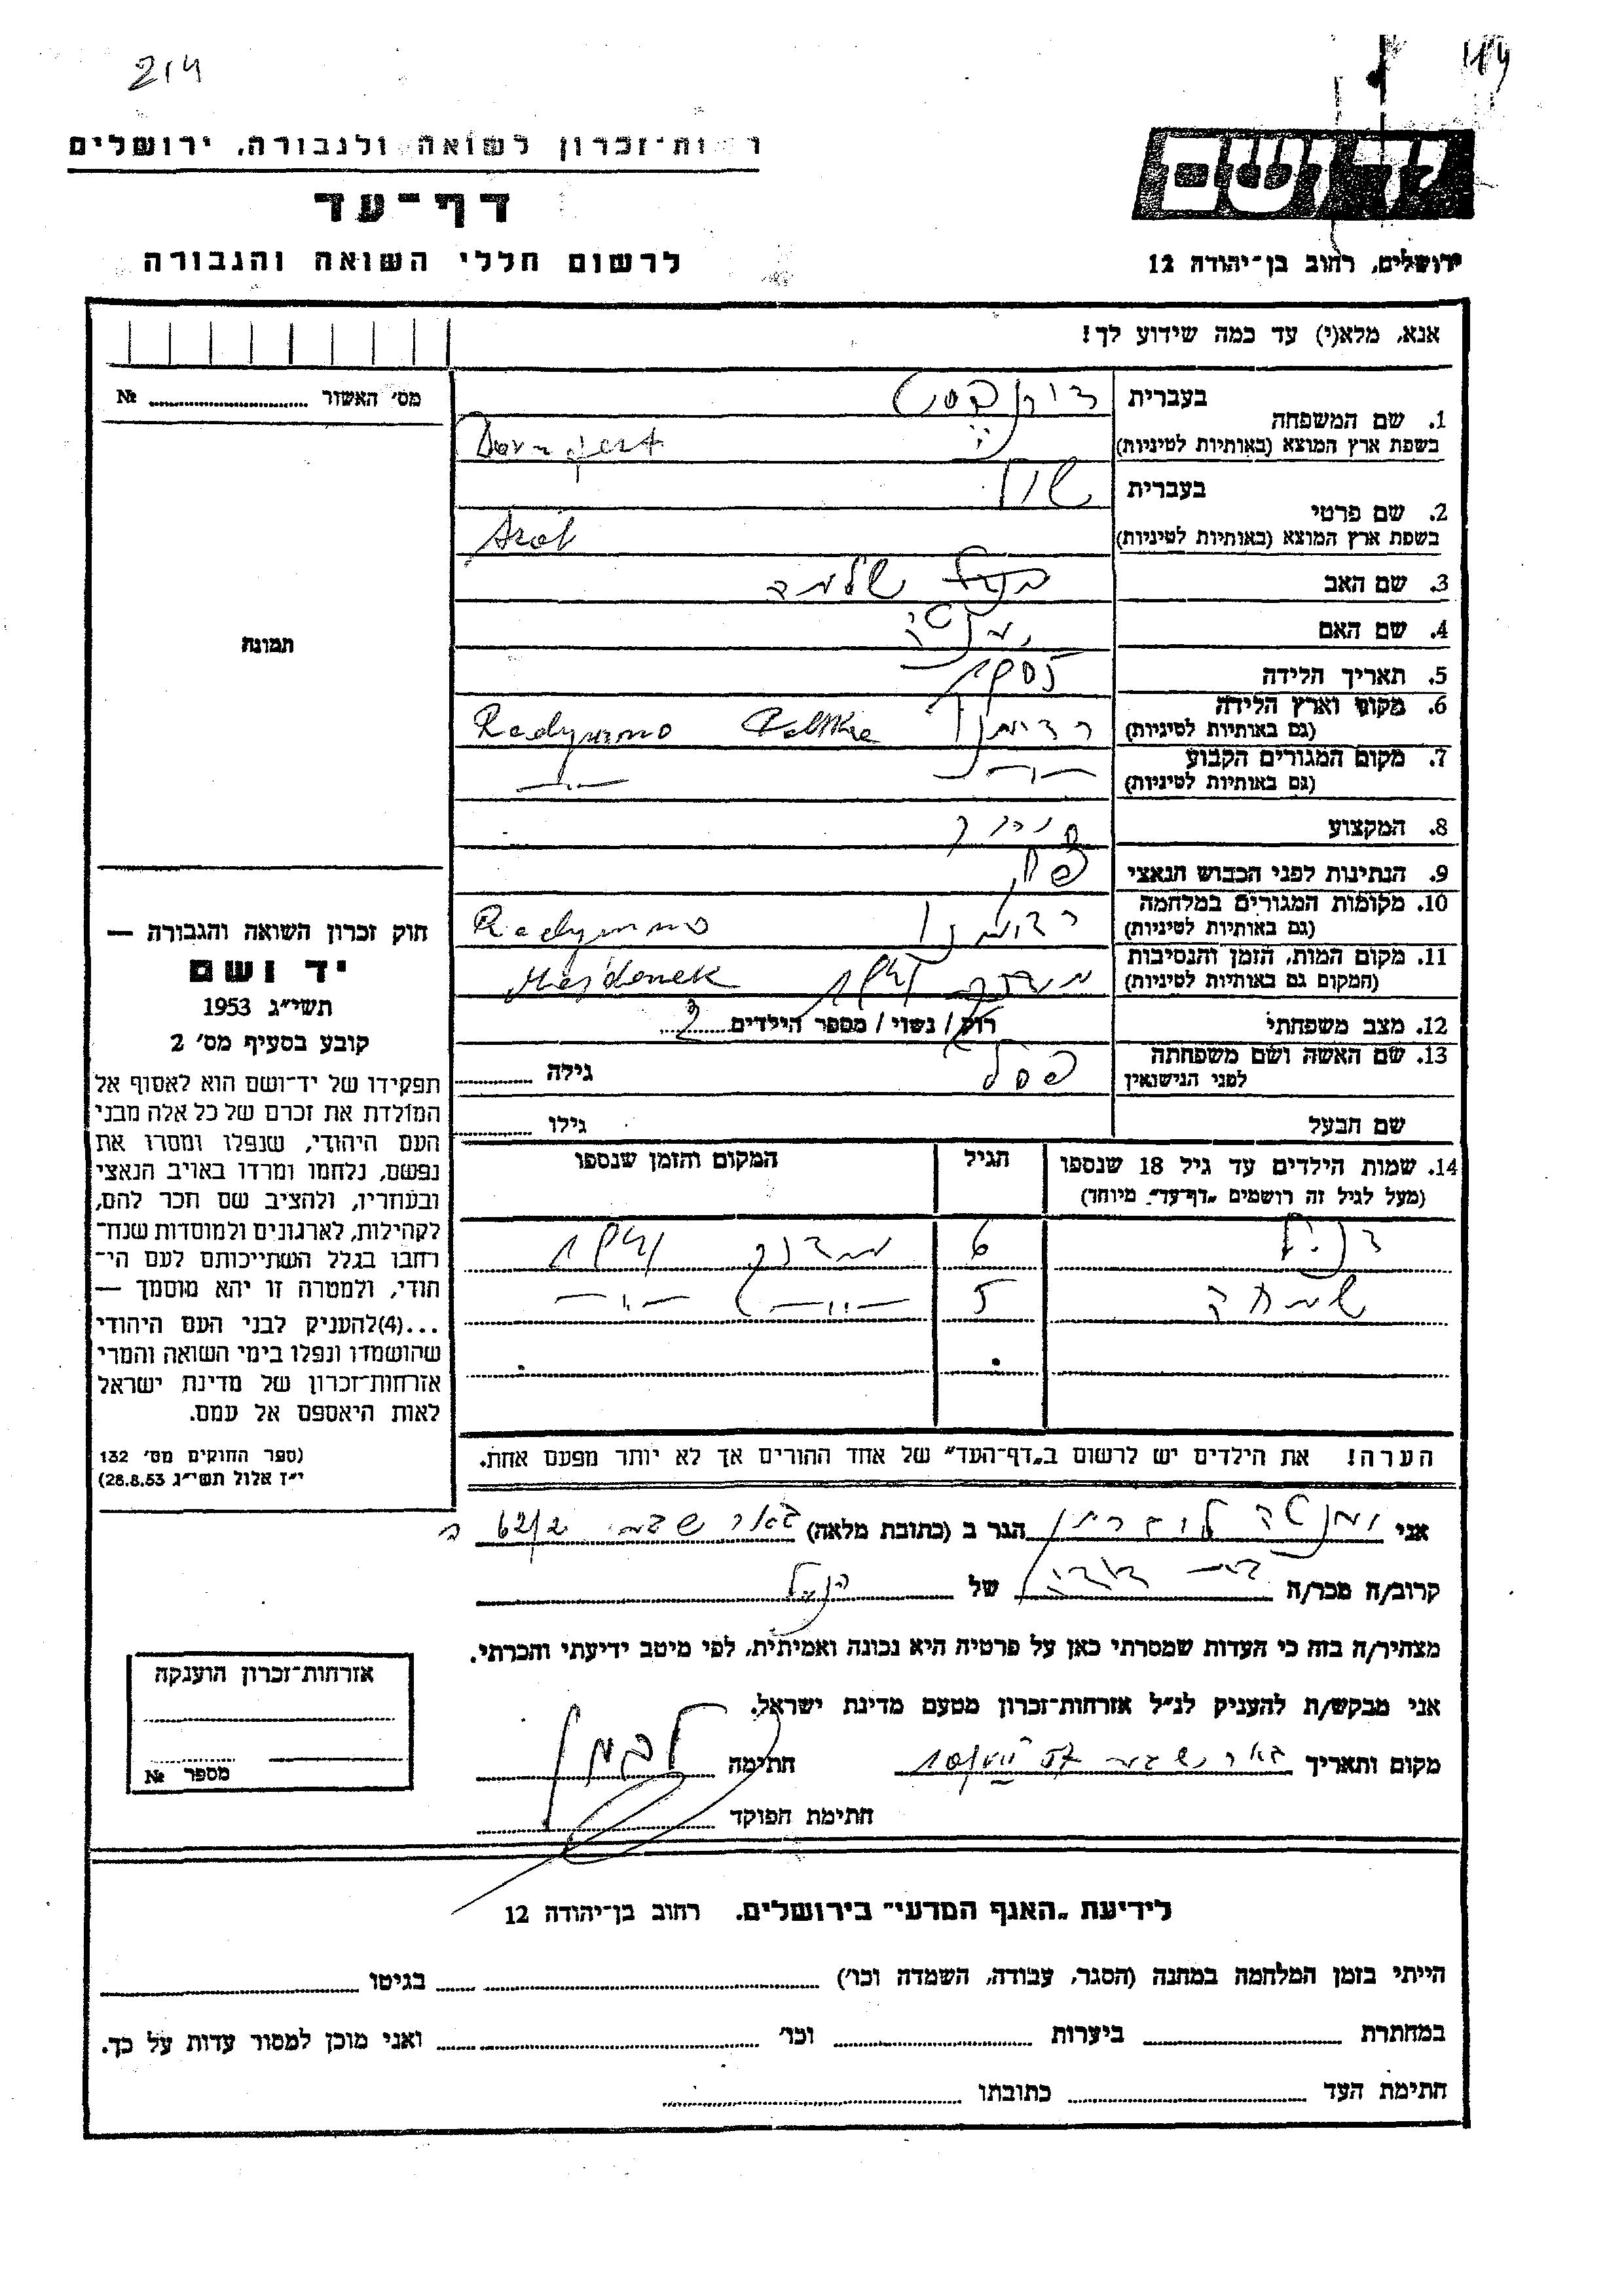 214
רשות־זכרון לשואה ולגבורה, ירושלים
דף־עד
לרשום חללי השואה והגבורה
ירושלים, רחוב בן־יהודה 12
אנא, מלא(י) עד כמה שידוע לך!
מס׳ האשור № ............
תמונה
חוק זכרון השואה והגבורה —
יד ושם
תשי״ג 1953
קובע בסעיף מס׳ 2
תפקידו של יד־ושם הוא לאסוף אל
המולדת את זכרם של כל אלה מבני
העם היהודי, שנפלו ומסרו את
נפשם, נלחמו ומרדו באויב הנאצי
ובעוזריו, ולהציב שם וזכר להם,
לקהילות, לארגונים ולמוסדות שנח־
רחבו בגלל השתייכותם לעם הי־
הודי, ולמטרה זו יהא מוסמך —
...(4)להעניק לבני העם היהודי
שהושמדו ונפלו בימי השואה והמרי
אזרחות־זכרון של מדינת ישראל
לאות היאספם אל עמם.
(ספר החוקים מס׳ 132
י״ז אלול תשי״ג 28.8.53)
1. שם המשפחה
בעברית
בשפת ארץ המוצא (באותיות לטיניות) Dornfest
2. שם פרטי
בעברית
בשפת ארץ המוצא (באותיות לטיניות)
3. שם האב שלמה
4. שם האם
5. תאריך הלידה 1905
6. מקום וארץ הלידה
(גם באותיות לטיניות) רדימנו Radymno
7. מקום המגורים הקבוע
(גם באותיות לטיניות) —״—
8. המקצוע
9. הנתינות לפני הכבוש הנאצי
10. מקומות המגורים במלחמה
(גם באותיות לטיניות) רדימנו Radymno
11. מקום המות, הזמן והנסיבות
(המקום גם באותיות לטיניות) מידנק 1941 Majdenek
12. מצב משפחתי רווק / נשוי / מספר הילדים 2
13. שם האשה ושם משפחתה
לפני הנישואין פסל גילה ............
שם הבעל גילו ............
14. שמות הילדים עד גיל 18 שנספו הגיל המקום והזמן שנספו
(מעל לגיל זה רושמים „דף־עד״ מיוחד)
6 מידנק 1941
שמחה 5 —״— —״—
הערה! את הילדים יש לרשום ב„דף־העד״ של אחד ההורים אך לא יותר מפעם אחת.
אני הגר ב (כתובת מלאה) באר שבע 62/2
קרוב/ה מכר/ה של
מצהיר/ה בזה כי העדות שמסרתי כאן על פרטיה היא נכונה ואמיתית, לפי מיטב ידיעתי והכרתי.
אני מבקש/ת להעניק לנ״ל אזרחות־זכרון מטעם מדינת ישראל.
מקום ותאריך באר שבע חתימה
חתימת הפוקד
אזרחות־זכרון הוענקה
מספר №
לידיעת „האגף המדעי״ בירושלים. רחוב בן־יהודה 12
הייתי בזמן המלחמה במחנה (הסגר, עבודה, השמדה וכו׳) ............ בגיטו ............
במחתרת ............ ביערות ............ וכו׳ ............ ואני מוכן למסור עדות על כך.
חתימת העד ............ כתובתו ............